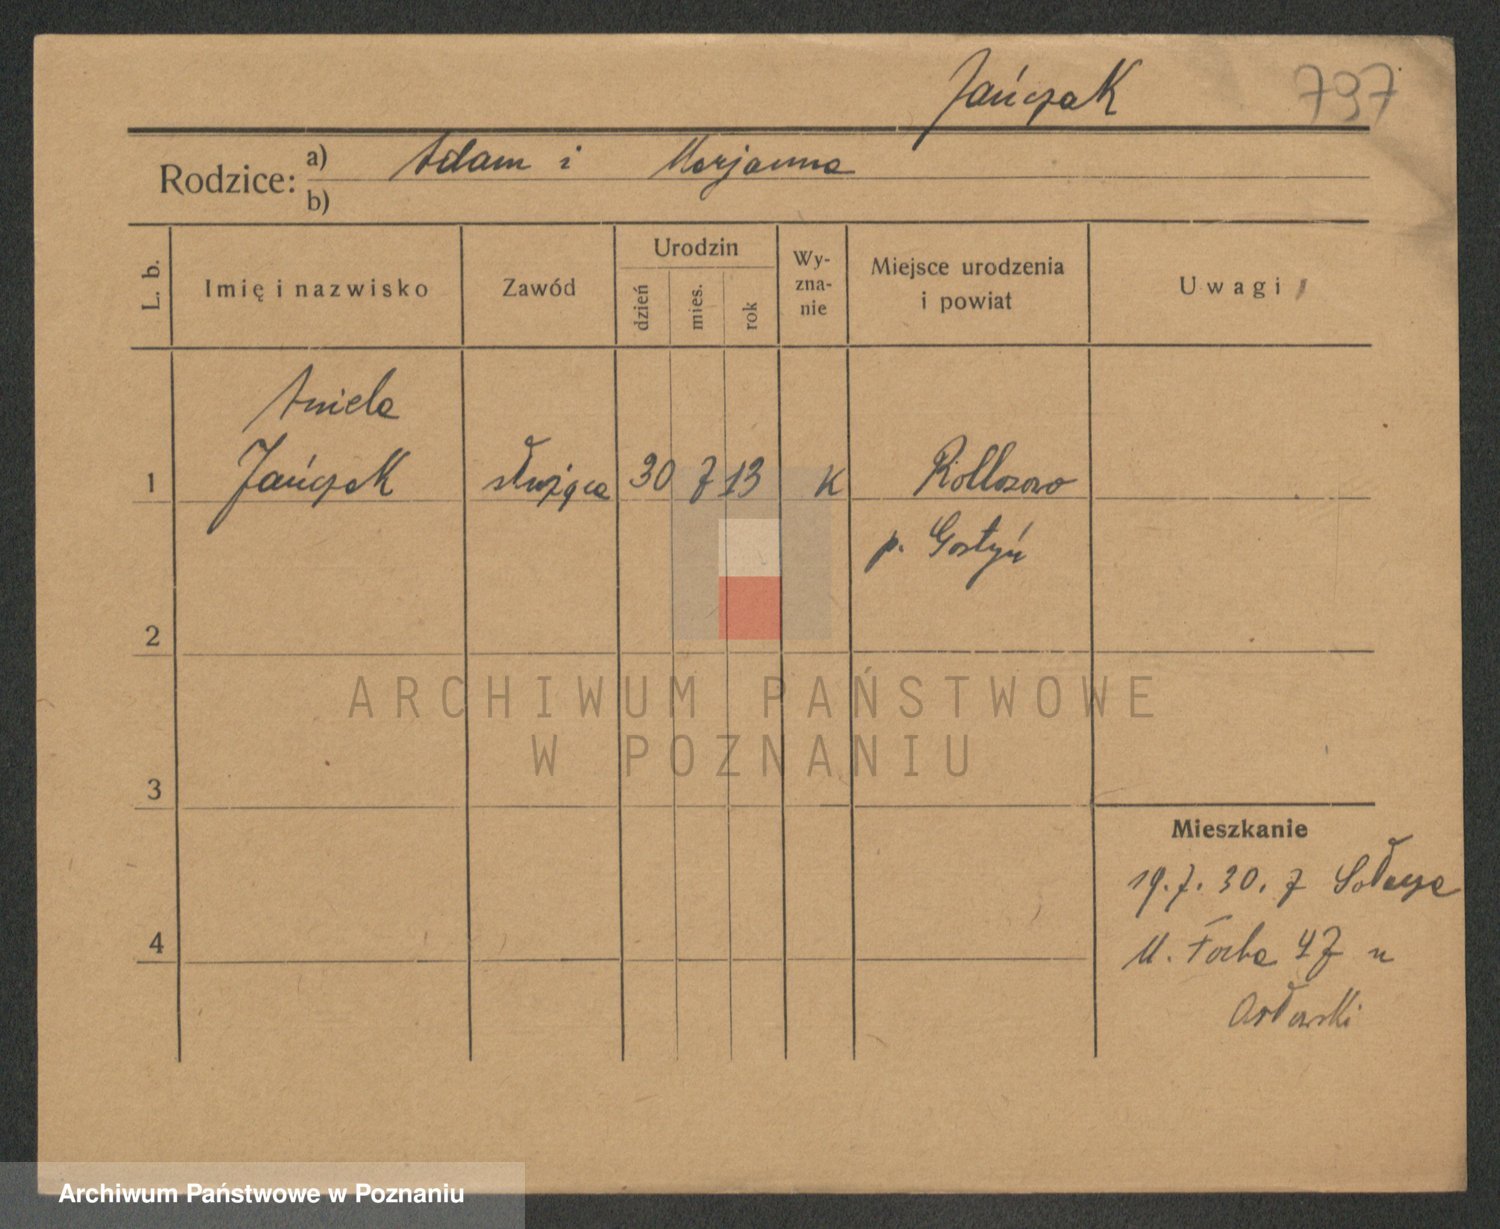 Jańczak
797
Rodzice: a) Adam i Marjanna
b)
L. b.
Imię i nazwisko
Zawód
Urodzin
dzień
mies.
rok
Wy-
zna-
nie
Miejsce urodzenia
i powiat
Uwagi
Aniela
1 Jańczak służąca 30 7 13 K
p. Gostyń
2
3
4
Mieszkanie
19.7.30. z Sołacza
M. Focha 47 u
ARCHIWUM PAŃSTWOWE
W POZNANIU
Archiwum Państwowe w Poznaniu